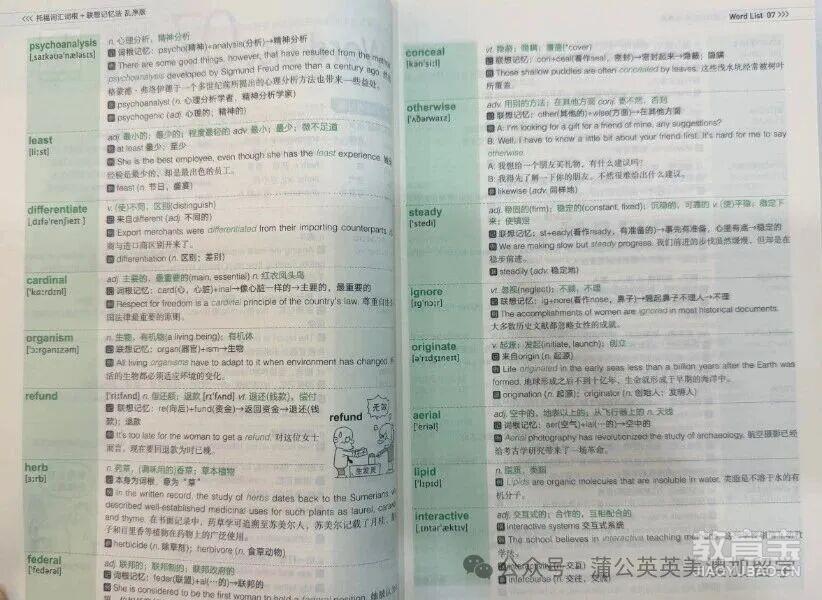 <<< 托福词汇词根+联想记忆法 乱序版
psychoanalysis
[ˌsaɪkəʊəˈnæləsɪs]
n. 心理分析，精神分析
词根记忆：psycho(精神)+analysis(分析)→精神分析
There are some good things, however, that have resulted from the
psychoanalysis developed by Sigmund Freud more than a century ago.
格蒙德·弗洛伊德于一个多世纪前所提出的心理分析方法也带来一些益处。
psychoanalyst (n. 心理分析学者，精神分析学家)
psychogenic (adj. 心理的；精神的)
least
[liːst]
adj. 最小的；最少的；程度最轻的 adv. 最小；最少；微不足道
at least 最少，至少
She is the best employee, even though she has the least experience.
经验是最少的，却是最出色的员工。
feast (n. 节日，盛宴)
differentiate
[ˌdɪfəˈrenʃieɪt]
v. (使)不同，区别(distinguish)
来自different (adj. 不同的)
Export merchants were differentiated from their importing counterparts.
商与进口商区别开来了。
differentiation (n. 区别；差别)
cardinal
[ˈkɑːrdɪnl]
adj. 主要的，最重要的(main, essential) n. 红衣凤头鸟
词根记忆：card(心，心脏)+inal→像心脏一样的→主要的，最重要的
Respect for freedom is a cardinal principle of the country's law. 尊重自由
国法律最重要的原则。
organism
[ˈɔːrɡənɪzəm]
n. 生物，有机物(a living being)；有机体
联想记忆：organ(器官)+ism→生物
All living organisms have to adapt to it when environment has changed.
活的生物都必须适应环境的变化。
refund
[ˈriːfʌnd] n. 偿还额；退款 [rɪˈfʌnd] vt. 退还(钱款)，偿付
联想记忆：re(向后)+fund(资金)→返回资金→退还(钱
款)；退款
It's too late for the woman to get a refund. 对这位女士
而言，现在要回退款为时已晚。
refund
无效
herb
[ɜːrb]
n. 药草，(调味用的)香草；草本植物
本身为词根，意为“草”
In the written record, the study of herbs dates back to the Sumerians
described well-established medicinal uses for such plants as laurel, caraway
and thyme. 在书面记录中，药草学可追溯至苏美尔人，苏美尔人记载了月桂、
子和百里香等植物在药物上的广泛使用。
herbicide (n. 除草剂)；herbivore (n. 食草动物)
federal
[ˈfedərəl]
adj. 联邦的；联邦制的；联邦政府的
词根记忆：feder(联盟)+al(…的)→联邦的
She is considered to be the first woman to hold a federal position.
Word List 07 >>>
conceal
[kənˈsiːl]
vt. 隐蔽；隐瞒；覆盖(*cover)
联想记忆：con+ceal(看作seal，密封)→密封起来→隐蔽；隐瞒
Those shallow puddles are often concealed by leaves. 这些浅水坑经常被树叶
所覆盖。
otherwise
[ˈʌðərwaɪz]
adv. 用别的方法；在其他方面 conj. 要不然，否则
联想记忆：other(其他的)+wise(方面)→在其他方面
A: I'm looking for a gift for a friend of mine, any suggestions?
B: Well, I have to know a little bit about your friend first. It's hard for me to say
otherwise.
A: 我想给一个朋友买礼物，有什么建议吗？
B: 我得先了解一下你的朋友。不然很难给出什么建议。
likewise (adv. 同样地)
steady
[ˈstedi]
adj. 稳固的(firm)；稳定的(constant, fixed)；沉稳的，可靠的 v. (使)平稳；稳定下
来；使镇定
联想记忆：st+eady(看作ready，有准备的)→事先有准备，心里有底→稳定的
We are making slow but steady progress. 我们前进的步伐虽然缓慢，但却是在
稳步前进。
steadily (adv. 稳定地)
ignore
[ɪɡˈnɔːr]
vt. 忽视(neglect)；不顾，不理
联想记忆：ig+nore(看作nose，鼻子)→翘起鼻子不理人→不理
The accomplishments of women are ignored in most historical documents.
大多数历史文献都忽略女性的成就。
originate
[əˈrɪdʒɪneɪt]
v. 起源；发起(initiate, launch)；创立
来自origin (n. 起源)
Life originated in the early seas less than a billion years after the Earth was
formed. 地球形成之后不到十亿年，生命就形成于早期的海洋中。
origination (n. 起源)；originator (n. 创始人；发明人)
aerial
[ˈeriəl]
adj. 空中的，地表以上的；从飞行器上的 n. 天线
词根记忆：aer(空气)+ial(…的)→空中的
Aerial photography has revolutionized the study of archaeology. 航空摄影已经
给考古学研究带来了一场革命。
lipid
[ˈlɪpɪd]
n. 脂质，类脂
Lipids are organic molecules that are insoluble in water. 类脂是不溶于水的有
机分子。
interactive
[ˌɪntərˈæktɪv]
adj. 交互式的；合作的，互相配合的
interactive systems 交互式系统
The school believes in interactive teaching
学技。
公众号·蒲公英英美澳加留学
教育宝
JIAOYUBAO.CN